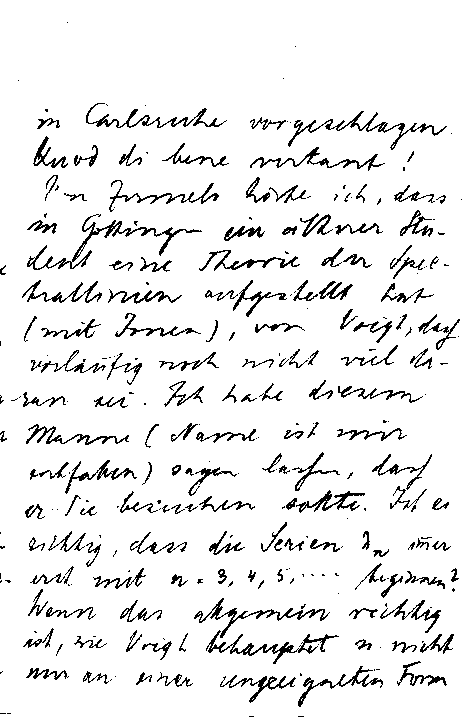 in Carlsruhe vorgeschlagen
Quod di bene vertant!
Von Jummels hörte ich, dass
in Göttingen ein älterer Stu-
dent eine Theorie der Spec-
trallinien aufgestellt hat
(mit Ionen), von Voigt, dass
vorläufig noch nicht viel da-
ran sei. Ich habe diesem
Manne (Name ist mir
entfallen) sagen lassen, dass
er Sie besuchen sollte. Ist es
richtig, dass die Serien immer
erst mit n = 3, 4, 5, .... beginnen?
Wenn das allgemein richtig
ist, wie Voigt behauptet
nur an einer ungeeigneten Form